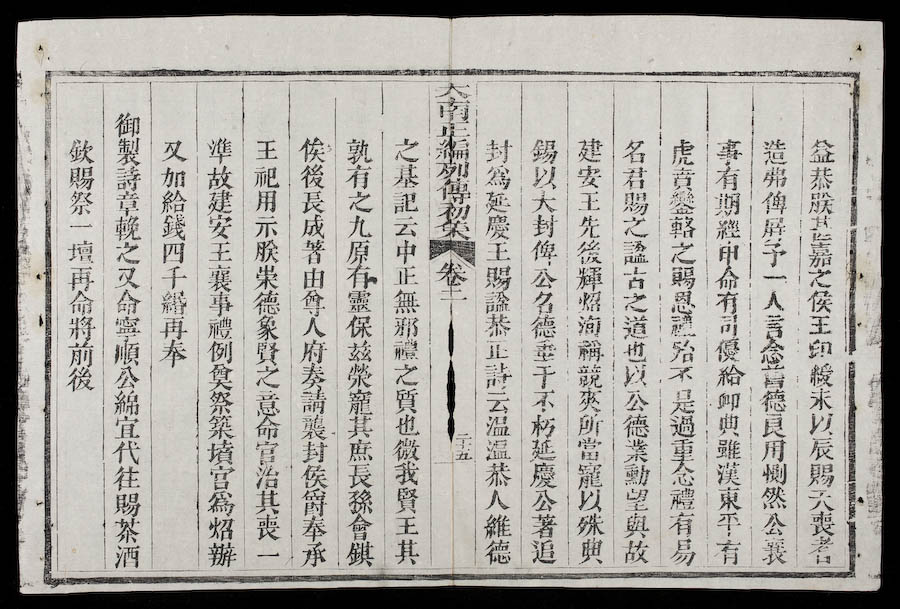 益恭朕甚嘉之侯王印綬未以辰賜天喪耆
造弗俾屏予一人言念舊德良用惻然公襄
事有期經申命有司優給卹典雖漢東平有
虎賁鑾輅之賜恩禮殆不是過重念禮有易
名君賜之謚古之道也以公德業勳望與故
建安王先後輝炤洵稱競爽所當寵以殊典
錫以大封俾公名德垂于不朽延慶公著追
封爲延慶王賜謚恭正詩云温温恭人維德
大南正編列傳初集 卷二 二十五
之基記云中正無邪禮之質也微我賢王其
孰有之九原有靈保兹榮寵其庶長孫會錤
俟後長成著由尊人府奏請襲封侯爵奉承
王祀用示朕崇德象賢之意命官治其喪一
準故建安王襄事禮例奠祭築墳宫爲炤辦
又加給錢四千緡再奉
御製詩章輓之又命寧順公綿宜代往賜茶酒
欽賜祭一壇再命將前後